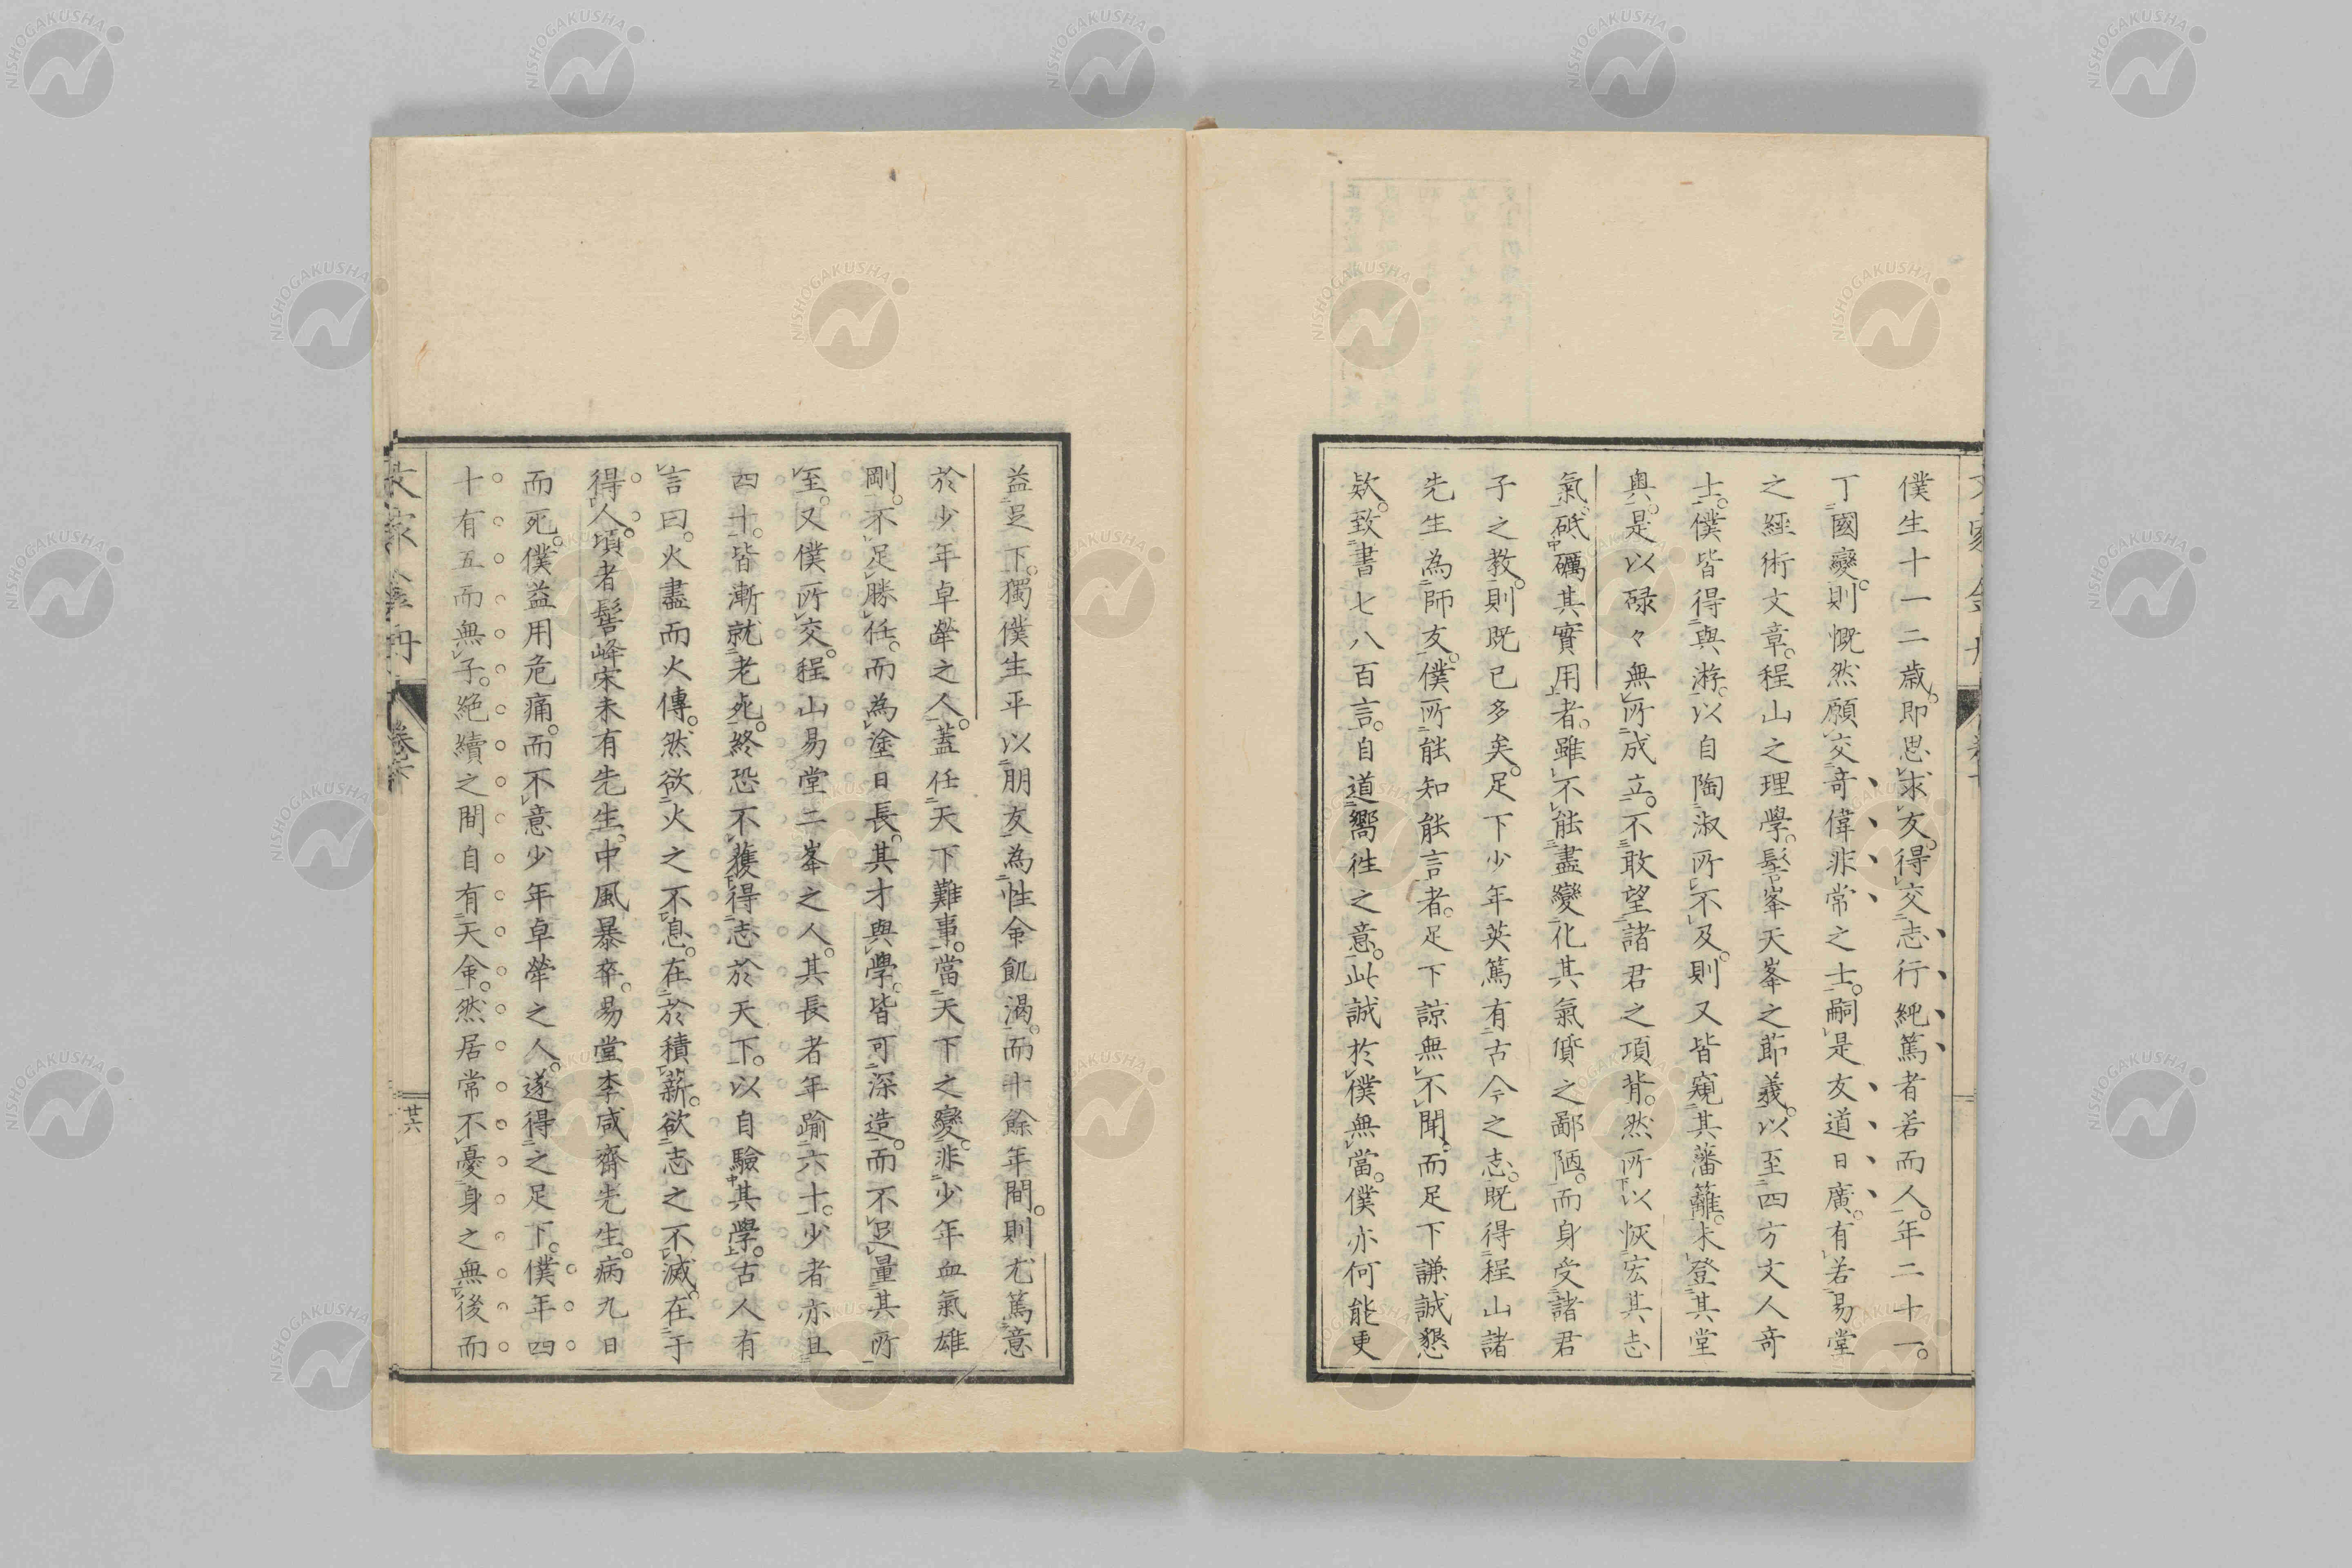 僕生十一二歳。即思求友。得交志行純篤者若而人。年二十一。
丁國變。則慨然願交奇偉非常之士。嗣是友道日廣。有若易堂
之經術文章。程山之理學。髻峯天峯之節義。以至四方文人奇
士。僕皆得與游。以自陶淑所不及。則又皆窺其藩籬。未登其堂
奥。是以碌々無所成立。不敢望諸君之項背。然所以恢宏其志
氣砥礪其實用者。雖不能盡變化其氣質之鄙陋。而身受諸君
子之教。則既已多矣。足下少年英篤有古今之志。既得程山諸
先生為師友。僕所能知能言者。足下諒無不聞。而足下謙誠懇
欵。致書七八百言。自道嚮徃之意。此誠於僕無當。僕亦何能更
益足下。獨僕生平以朋友為性命飢渴。而十餘年間。則尤篤意
於少年卓犖之人。蓋任天下難事。當天下之變。非少年血氣雄
剛。不足勝任。而為塗日長。其才與學。皆可深造。而不足量其所
至。又僕所交。程山易堂二峯之人。其長者年踰六十。少者亦且
四十。皆漸就老死。終恐不獲得志於天下。以自驗其學。古人有
言曰。火盡而火傳。然欲火之不息。在於積薪。欲志之不滅。在于
得人。頃者髻峰宋未有先生。中風暴卒。易堂李咸齋先生。病九日
而死。僕益用危痛。而不意少年卓犖之人。遂得之足下。僕年四
十有五而無子。絶續之間自有天命。然居常不憂身之無後而
文家金丹
文家金丹
廿六
NISHOGAKUSHA